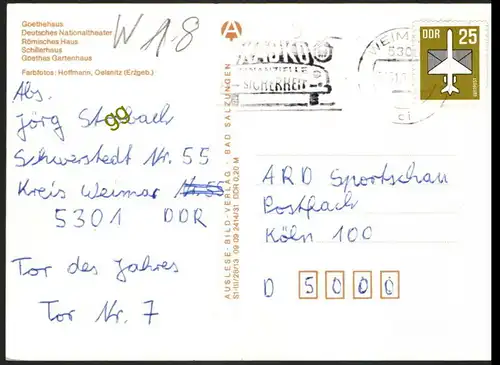 Goethehaus
Deutsches Nationaltheater
Römisches Haus
Schillerhaus
Goethes Gartenhaus
Farbfotos: Hoffmann, Oelsnitz (Erzgeb.)
W 1-8
A
WEIMAR
530
SICHERHEIT
ci
DDR 25
Abs.
Jörg
Schwerstedt Nr. 55
Kreis Weimar Nr. 55
5301 DDR
Tor des Jahres
Tor Nr. 7
AUSLESE-BILD-VERLAG - BAD SALZUNGEN
09 09 2414/31 DDR 0,20 M
ARD Sportschau
Postfach
Köln 100
D 5000